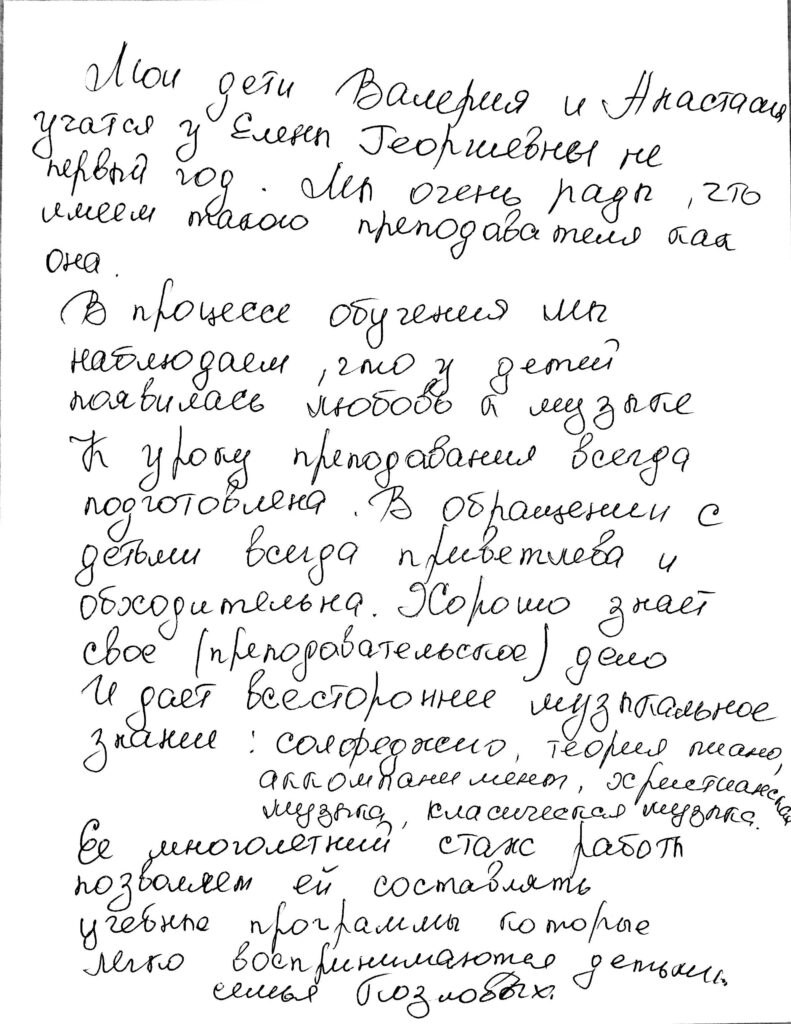 Мои дети Валерия и Анастасия
учатся у Елены Георгиевны не
первый год. Мы очень рады, что
имеем такого преподавателя как
она.
В процессе обучения мы
наблюдаем, что у детей
появилась любовь к музыке
К уроку преподавания всегда
подготовлена. В обращении с
детьми всегда приветлева и
обходительна. Хорошо знает
свое (преподовательское) дело
И дает всестороннее музыкальное
знание: солфеджио, теория пиано,
аккомпанимент, христианская
музыка, класическая музыка.
Ее многолетний стаж работы
позволяет ей составлять
учебные программы которые
легко воспринимаются детьми.
семья Козловых.